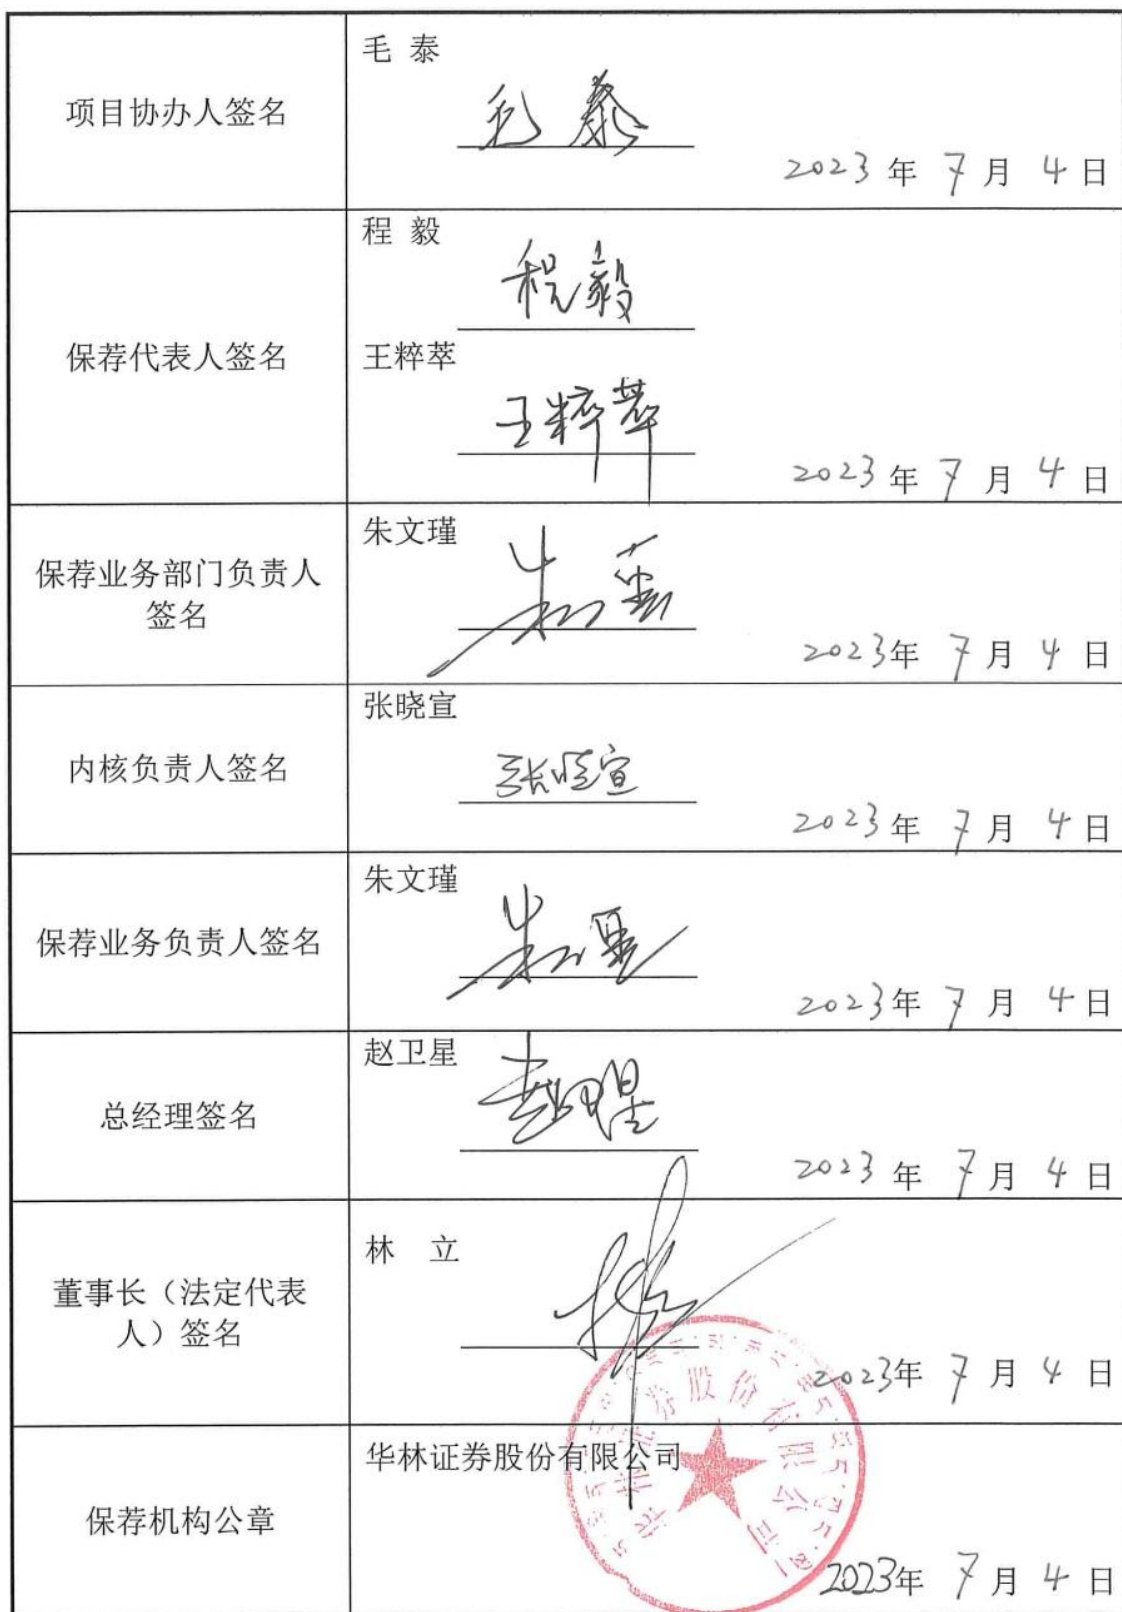 项目协办人签名
毛 泰
毛泰
2023年 7月 4日
保荐代表人签名
程 毅
程毅
王粹萃
王粹萃
2023年 7月 4日
保荐业务部门负责人
签名
朱文瑾
朱文瑾
2023年 7月 4日
内核负责人签名
张晓宣
张晓宣
2023年 7月 4日
保荐业务负责人签名
朱文瑾
朱文瑾
2023年 7月 4日
总经理签名
赵卫星
赵卫星
2023年 7月 4日
董事长（法定代表
人）签名
林 立
林立
2023年 7月 4日
保荐机构公章
华林证券股份有限公司
华林证券股份有限公司
2023年 7月 4日